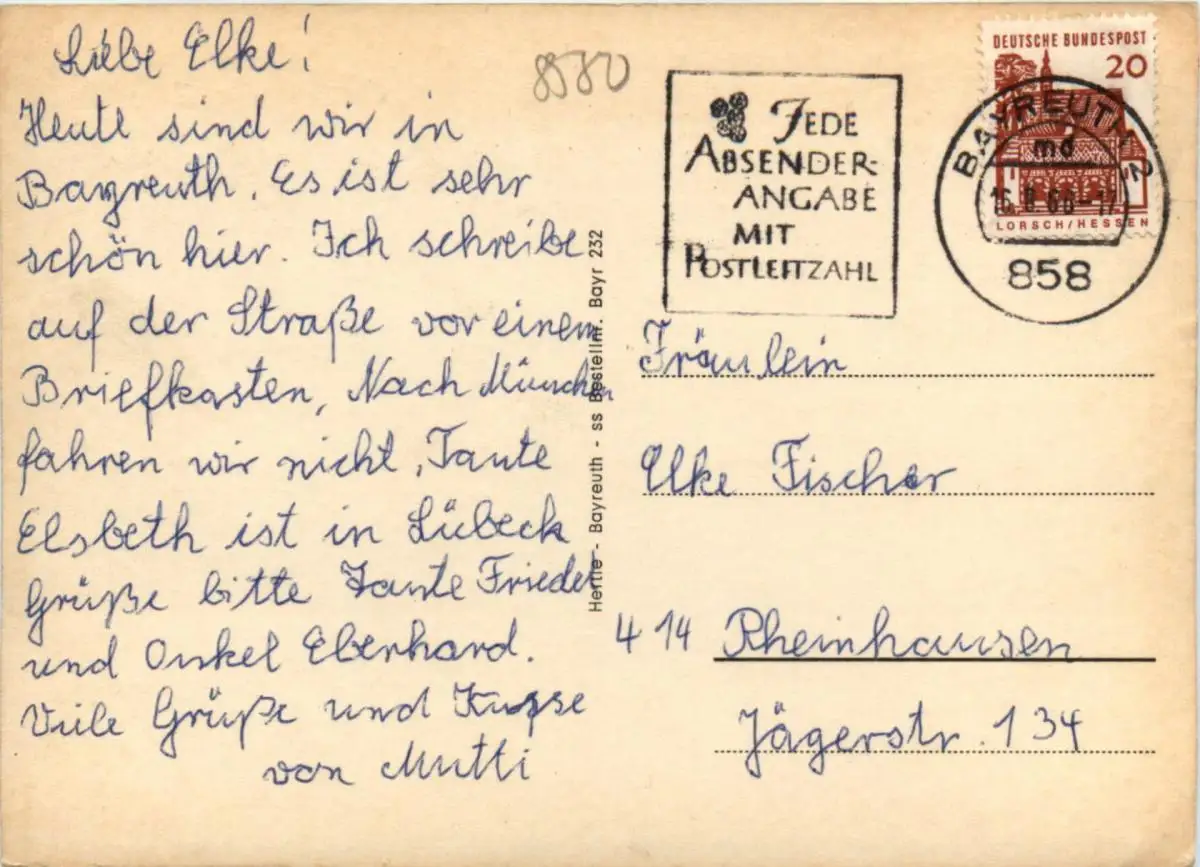 Liebe Elke!
Heute sind wir in
Bayreuth. Es ist sehr
schön hier. Ich schreibe
auf der Straße vor einem
Briefkasten, Nach München
fahren wir nicht, Tante
Elsbeth ist in Lübeck
Grüße bitte Tante Friedel
und Onkel Eberhard.
Viele Grüße und Küsse
von Mutti
8580
JEDE
ABSENDER-
ANGABE
MIT
POSTLEITZAHL
DEUTSCHE BUNDESPOST
20
LORSCH/HESSEN
BAYREUTH 2
md
858
Hertie - Bayreuth - ss Bestellnr. Bayr 232
Fräulein
Elke Fischer
414 Rheinhausen
Jägerstr. 134